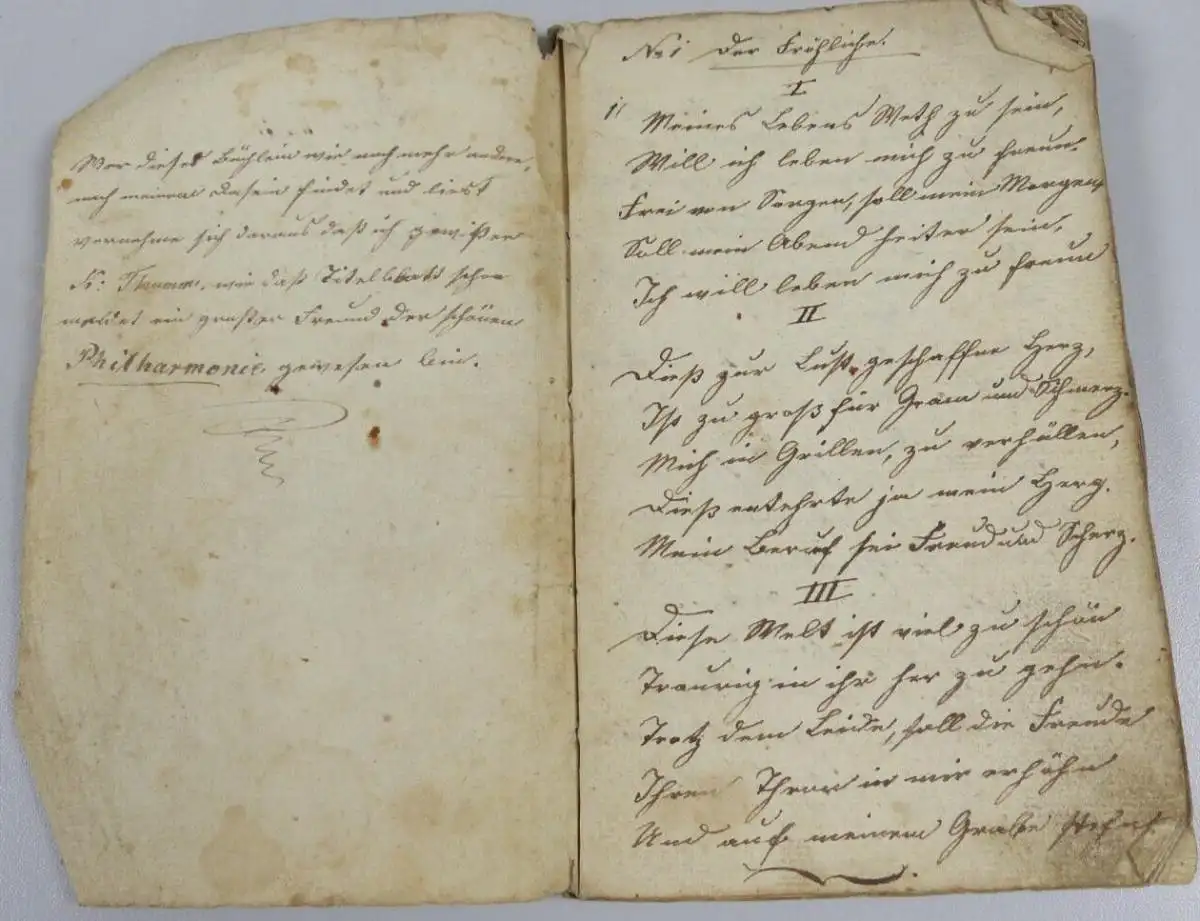 Wer dieses Büchlein wie noch mehr andere,
nach meinem Dasein findet und liest
vernehme sich daraus daß ich gewißer
F: Thomm, wie daß Titelblatt schon
meldet ein großer Freund der schönen
Philharmonie, gewesen bin.
No 1 Der Fröhliche.
I
1 Meines Lebens Weth zu sein,
Will ich leben mich zu freun.
Frei von Sorgen, soll mein Morgen,
Soll mein Abend heiter sein,
Ich will leben mich zu freun
II
Dieß zur Lust geschaffne Herz,
Ist zu groß für Gram und Schmerz.
Mich in Grillen, zu verhüllen,
Dieß entehrte ja mein Herz.
Mein Beruf sei Freud und Scherz.
III
Diese Welt ist viel zu schön
Traurig in ihr her zu gehn.
Trotz dem Leide, soll die Freude
Ihren Thron in mir erhöhn
Und auf meinem Grabe stehn.